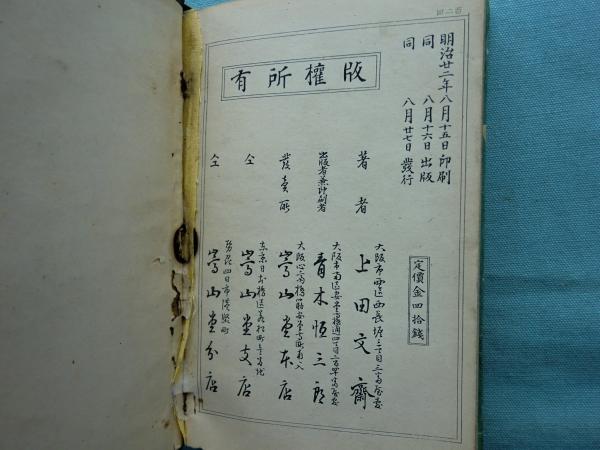 明治廿二年八月十五日印刷
同 八月十六日出版
同 八月廿七日發行
定價金四拾錢
版權所有
大阪市西區西長堀
著者 上田文齋
大阪市南區
出版者兼印刷者 青木恒三郎
大阪心齋橋筋
發賣所 嵩山堂本店
東京日本橋區
仝 嵩山堂支店
勢州四日市
仝 嵩山堂分店